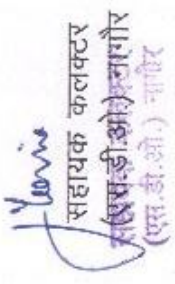 सहायक कलक्टर
(एस.डी.ओ.) नागौर
(एस.डी.ओ.) नागौर